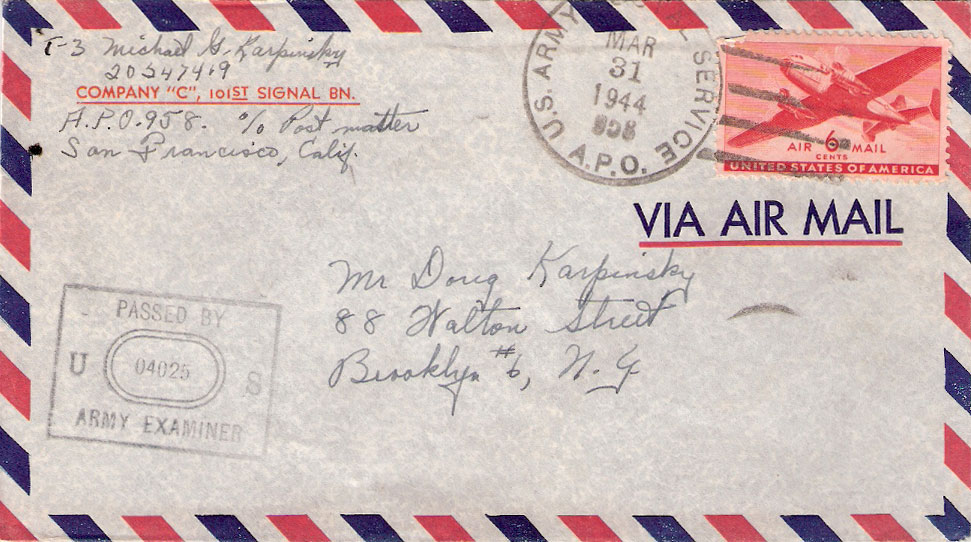 T-3 Michael G. Karpinsky
20247419
COMPANY "C", 101ST SIGNAL BN.
A.P.O. 958. c/o Post matter
San Francisco, Calif.
U.S. ARMY SERVICE
MAR
31
1944
958
A.P.O.
AIR 6 MAIL
CENTS
UNITED STATES OF AMERICA
VIA AIR MAIL
Mr Doug Karpinsky
88 Walton Street
Brooklyn #6, N.Y.
PASSED BY
U 04025 S
ARMY EXAMINER